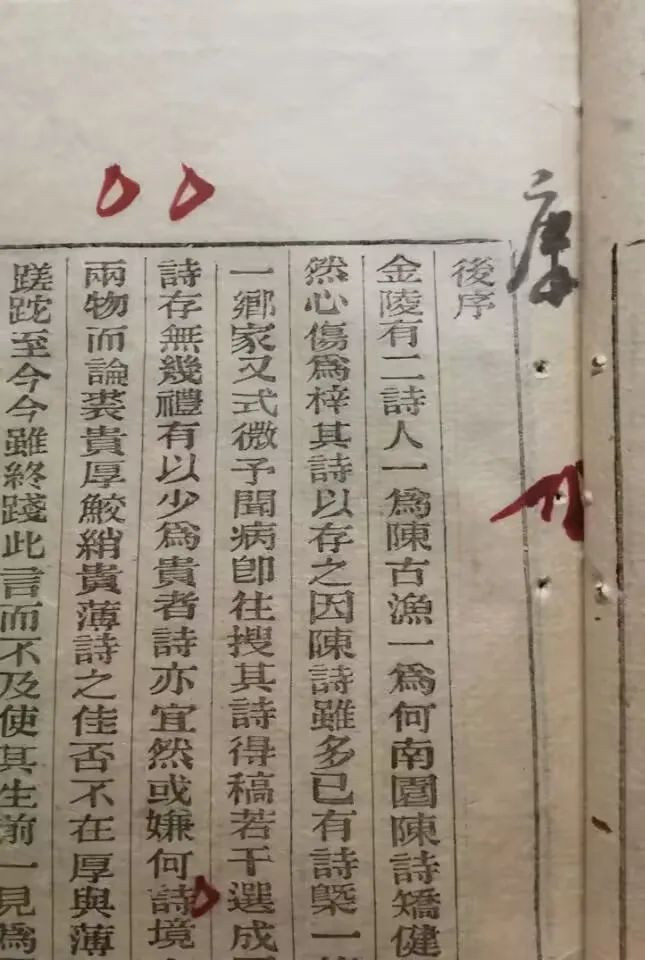 後序
金陵有二詩人一爲陳古漁一爲何南園陳詩矯健
然心傷爲梓其詩以存之因陳詩雖多已有詩槩一
一鄉家又式微予聞病卽往搜其詩得稿若干選成
詩存無幾禮有以少爲貴者詩亦宜然或嫌何詩境
兩物而論裘貴厚鮫綃貴薄詩之佳否不在厚與薄
蹉跎至今今雖終踐此言而不及使其生前一見爲